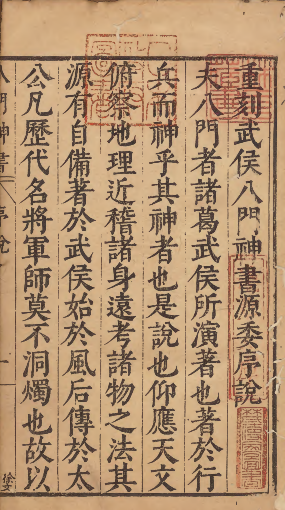 重刻武侯八門神書源委序說
夫八門者諸葛武侯所演著也著於行
兵而神乎其神者也是說也仰應天文
俯察地理近稽諸身遠考諸物之法其
源有自備著於武侯始於風后傳於太
公凡歷代名將軍師莫不洞燭也故以
八門神書 序說 一